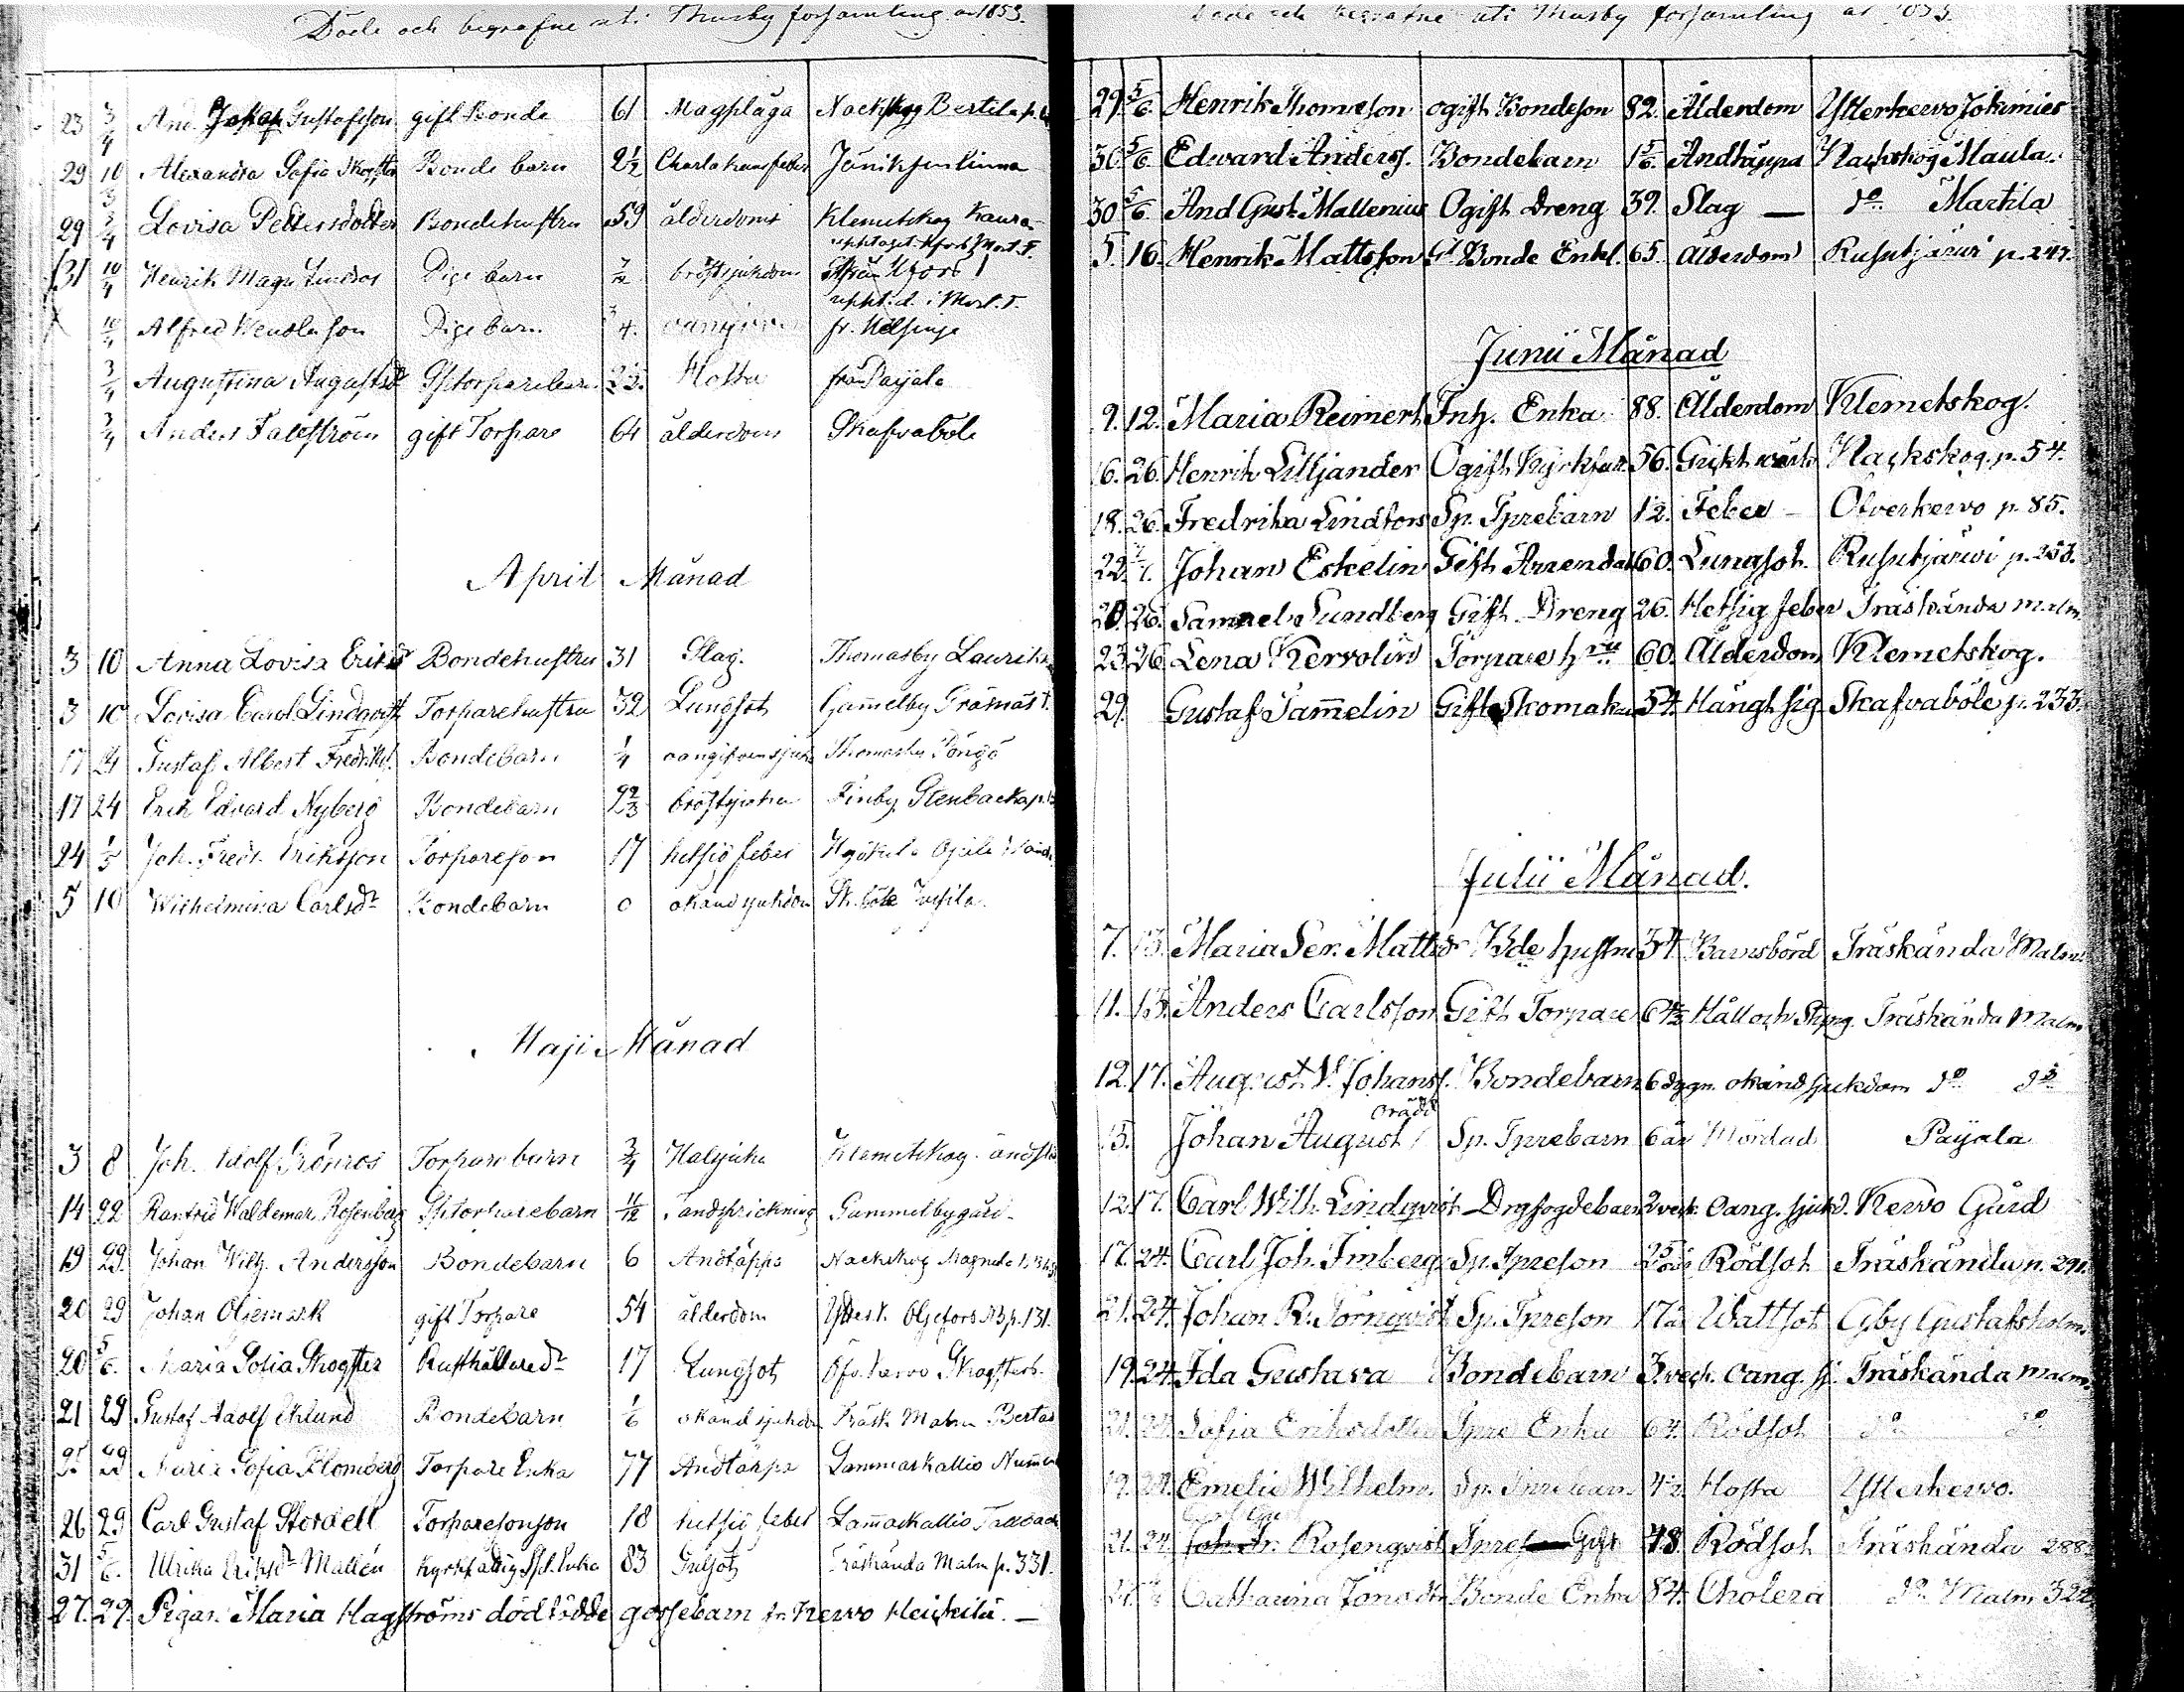 Döde och begrafne uti Thusby församling år 1853.
23 3/4 And. Jakob Gustafsson gift Bonde 61 Magplåga Nackskog Bertila
29 10/3 Alexandra Sofia Skogster Bonde barn 2 1/2 Charlakansfeber Jäniksenlinna
29 3/4 Lovisa Pettersdotter Bondehustru 59 ålderdoms Klemetskog
31 10/4 Henrik Magn. Pige barn 7/12 bröstsjukdom från Hfors
10/4 Alfred Pige barn 3/4 fr. Helsinge
3/4 Augustina Augustsdr Sptorparebarn 2 1/2 Hosta från Payala
3/4 Anders Fallström gift Torpare 64 ålderdoms Skafvaböle
April Månad
3 10 Anna Lovisa Eriksdr Bondehustru 31 Slag. Thomasby
3 10 Lovisa Carol. Lindqvist Torparehustru 32 Lungsot Gammelby
17 24 Gustaf Albert Fredriks. Bondebarn 1/4 oangifven sjukd Thomasby
17 24 Erik Edvard Nyberg Bondebarn 2 2/3 bröstsjuka Finby Stenbacka
24 1/5 Joh. Fredr. Eriksson Torpareson 17 hetsig feber Hyökälä
5 10 Wilhelmina Carlsdr Bondebarn 0 okänd sjukdom Sk. böle Jussila
Maji Månad
3 8 Joh. Adolf Grönros Torparebarn 3/4 Halsjuka Klemetskog
14 22 Ranfrid Waldemar Rosenberg Sptorparebarn 11/12 Tandsprickning Gammelbygård
19 29 Johan Wilh. Andersson Bondebarn 6 Andtäppa Nackskog
20 29 Johan Oljemark gift Torpare 54 ålderdom Oljefors p. 131.
20 5/6. Maria Sofia Skogster Rusthållaredr 17 Lungsot Öfv. Kervo Skogsters
21 29 Gustaf Adolf Eklund Bondebarn 1/6 okänd sjukdom Träsk. Malm
29 Maria Sofia Blomberg Torpare Enka 77 Andtäppa Lammaskallio
26 29 Carl Gustaf Stordell Torparesonson 18 hetsig feber Lammaskallio
31 5/6. Ulrika Eriksdr Mallén Kyrkfattig Spl. Enka 83 Gulsot Träskända Malm p. 331.
27. 29. Pigan Maria Hagströms dödfödde gossebarn fr. Kervo Heikkilä. —
Döde och begrafne uti Thusby församling år 1853.
29. 5/6. Henrik Thomasson ogift Bondeson 82. Ålderdom Ytterkervo Jokimies
30. 5/6. Edward Anderss. Bondebarn 1 5/6. Andtäppa Nackskog Maula.
30 5/6. And Gust. Mattenius Ogift Dreng 39. Slag — do. Martila
5. 16. Henrik Mattsson Gl Bonde Enkl. 65. Ålderdom Rusutjärvi p. 247.
Junii Månad
9. 12. Maria Reimert Inh. Enka 88. Ålderdom Klemetskog.
16. 26. Henrik Lilljander Ogift Kyrkfatt. 56. Gicktvärk Nackskog. p. 54.
18. 26. Fredrika Lindfors Sp. Tprebarn 12. Feber – Ofverkervo p. 85.
22. Johan Eskelin Gift Arrendat. 60. Lungsot. Rusutjärvi p. 253.
20. 26. Samuel Sundberg Gift. Dreng 26. Hetsig feber Träskända malm
23. 26. Lena Kervolin Torpare hru 60. Ålderdom Klemetskog.
29. Gustaf Sammelin Gift Skomakare 54. Hängt sig Skafvaböle p. 233.
Julii Månad.
7. 13. Maria Ser. Mattsdr Bde hustru 34. Barnsbörd Träskända Malm
11. 13. Anders Carlsson Gift Torpare 64 1/2 Håll och Styng. Träskända Malm
12. 17. August V. Johanss. Bondebarn 6 dygn. okänd sjukdom do do
13. Johan August Sp. Tprebarn 6 år Mördad Payala
12. 17. Carl Wilh. Lindqvist Drgfogdebarn 2 veck. Oang. sjukd. Kervo Gård
17. 24. Carl Joh. Imberg Sp. Tpreson Rödsot Träskända p. 291.
21. 24. Johan R. Törnqvist Sp. Tpreson 17 år Wattsot Gby Gustafsholm.
19. 24. Ida Gustava Bondebarn 3. veck. Oang. sj. Träskända malm.
21. 24. Sofia Eriksdotter Tpre Enka 64. Rödsot do do
19. 24. Emelie Wilhelm. Sp. Tprebarn 4 1/2 Hosta Ytterkervo.
21. 24. Rosenqvist Tpre Gift 48 Rödsot Träskända 288
Catharina Jonasdtr Bonde Enka 84. Cholera do Malm 322